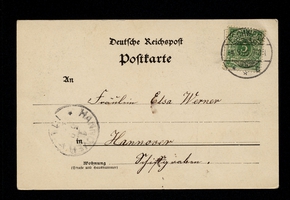 Deutsche Reichspost
Postkarte
An
Fräulein Elsa Werner
in
Hannover
Wohnung
(Straße und Hausnummer)
Schiffgraben.
HANNOVER
5